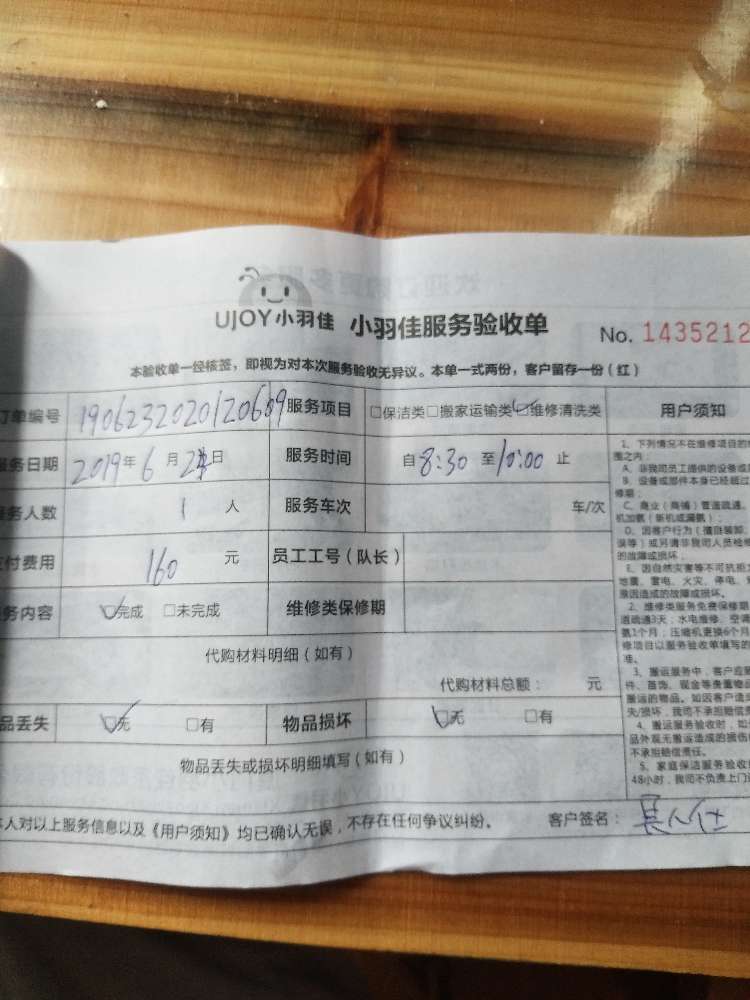 UJOY小羽佳 小羽佳服务验收单 No. 1435212
本验收单一经核签，即视为对本次服务验收无异议。本单一式两份，客户留存一份（红）
订单编号 1906232020120609 服务项目 □保洁类□搬家运输类☑维修清洗类 用户须知
服务日期 2019年6月24日 服务时间 自8:30至10:00止
服务人数 1人 服务车次 车/次
应付费用 160元 员工工号（队长）
服务内容 ☑完成 □未完成 维修类保修期
代购材料明细（如有）
代购材料总额： 元
品丢失 ☑无 □有 物品损坏 ☑无 □有
物品丢失或损坏明细填写（如有）
本人对以上服务信息以及《用户须知》均已确认无误，不存在任何争议纠纷。 客户签名：
1、下列情况不在维修项目的
围之内：
A、非我司员工提供的设备或
B、设备或部件本身已经超过
修期；
C、商业（商铺）管道疏通、
机加氨（新机或漏氨）；
D、因客户行为（擅自装卸、
误等）或另请非我司人员检修
的故障或损坏；
E、因自然灾害等不可抗拒
地震、雷电、火灾、停电、
原因造成的故障或损坏。
2、维修类服务免费保修期
道疏通3天；水电维修、空调
氨1个月；压缩机更换6个月
修项目以服务验收单填写的
准。
3、搬运服务中，客户应
件、首饰、现金等贵重物品
搬运的物品。如因客户
失/损坏，我司不承担赔偿
4、搬运服务验收时，如
品外观无搬运造成的损伤
不承担赔偿责任。
5、家庭保洁服务验收
48小时，我司不负责上门